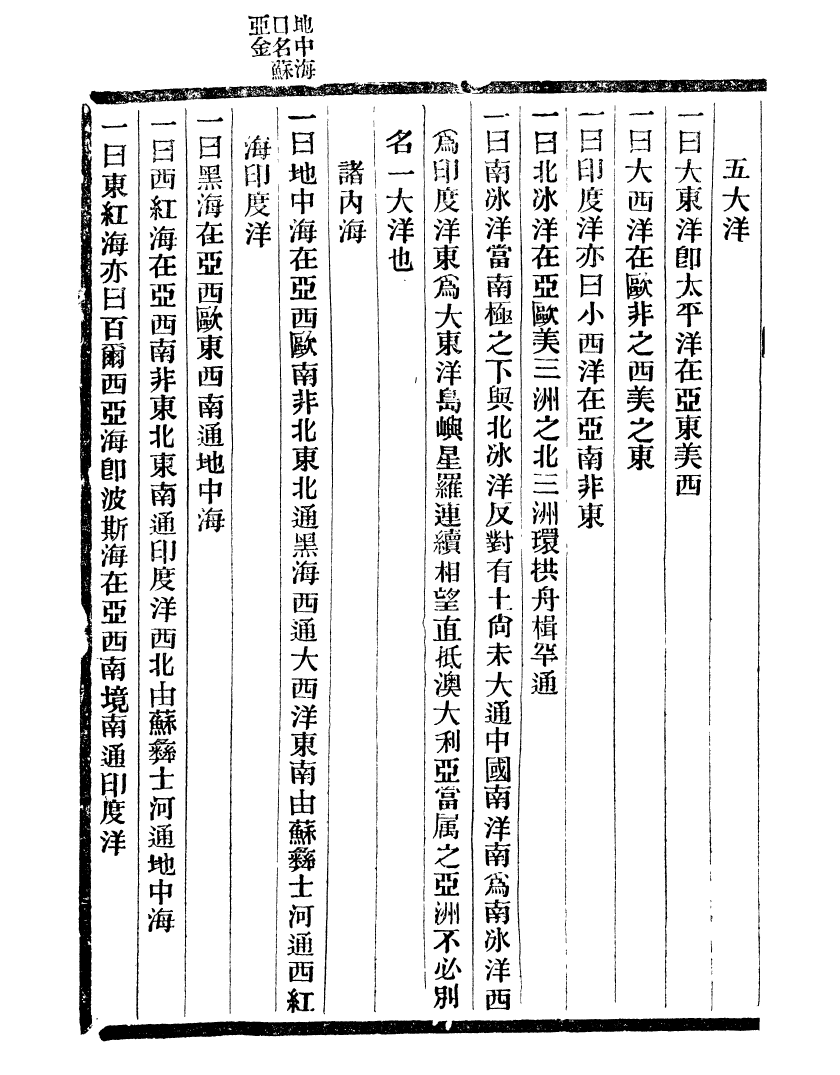 地中海
口名蘇
亞金
五大洋
一曰大東洋卽太平洋在亞東美西
一曰大西洋在歐非之西美之東
一曰印度洋亦曰小西洋在亞南非東
一曰北冰洋在亞歐美三洲之北三洲環拱舟楫罕通
一曰南冰洋當南極之下與北冰洋反對有土尙未大通中國南洋南爲南冰洋西
爲印度洋東爲大東洋島嶼星羅連續相望直抵澳大利亞當属之亞洲不必別
名一大洋也
諸内海
一曰地中海在亞西歐南非北東北通黑海西通大西洋東南由蘇彝士河通西紅
海印度洋
一曰黑海在亞西歐東西南通地中海
一曰西紅海在亞西南非東北東南通印度洋西北由蘇彝士河通地中海
一曰東紅海亦曰百爾西亞海卽波斯海在亞西南境南通印度洋